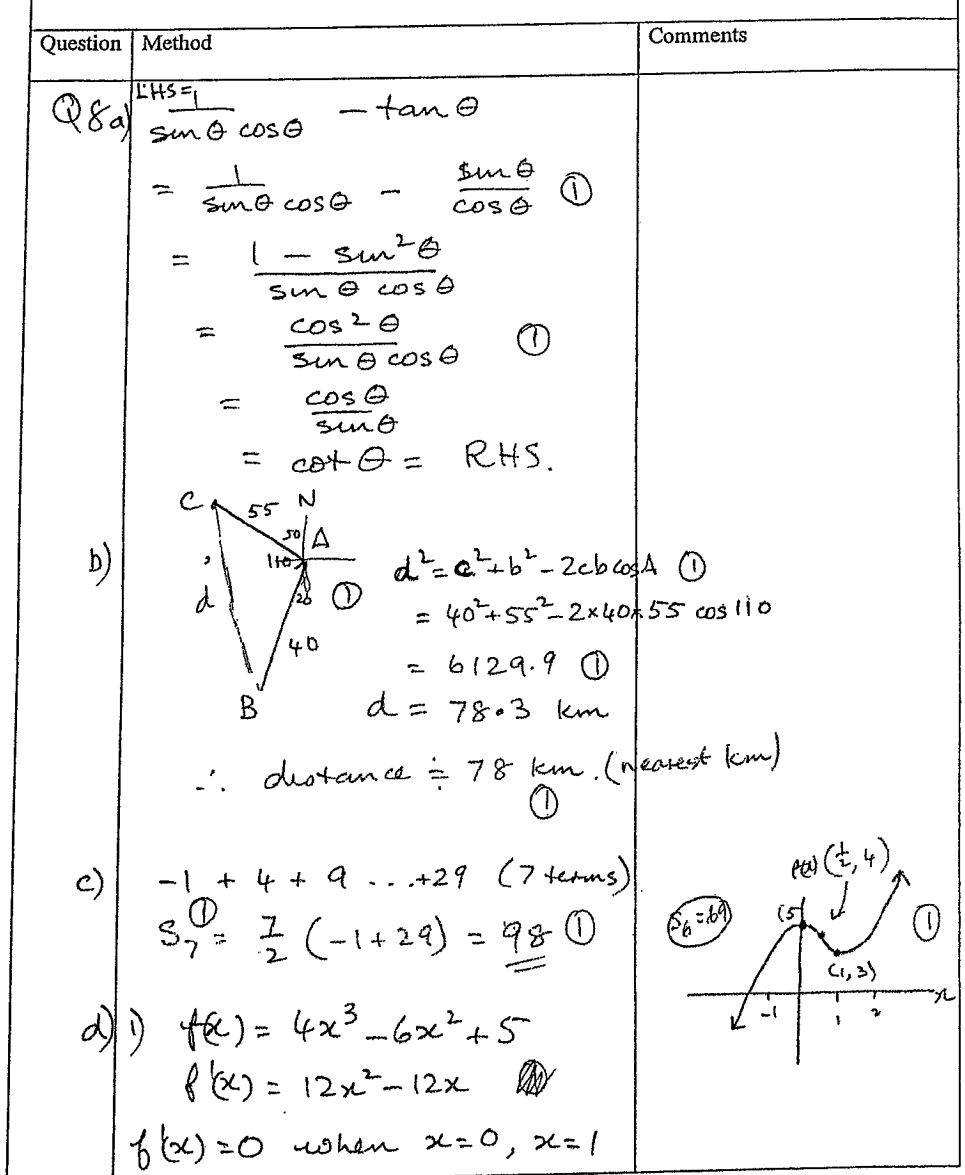 Question Method Comments
Q8a) LHS = 1/(sin θ cos θ) − tan θ
= 1/(sin θ cos θ) − sin θ/cos θ ①
= (1 − sin²θ)/(sin θ cos θ)
= cos²θ/(sin θ cos θ) ①
= cos θ/sin θ
= cot θ = RHS.
C 55 N
50 A
b) 110 d² = c² + b² − 2cb cos A ①
d 20 ① = 40² + 55² − 2×40×55 cos 110
40 = 6129.9 ①
B d = 78.3 km
∴ distance ≑ 78 km. (nearest km)
①
c) −1 + 4 + 9 ...+29 (7 terms)
S₇ ① = 7/2 (−1+29) = 98 ①
S₆ = 69
(½, 4)
(5 ①
(1,3)
−1 1 2 x
d) 1) f(x) = 4x³ − 6x² + 5
f'(x) = 12x² − 12x
f'(x) = 0 when x=0, x=1